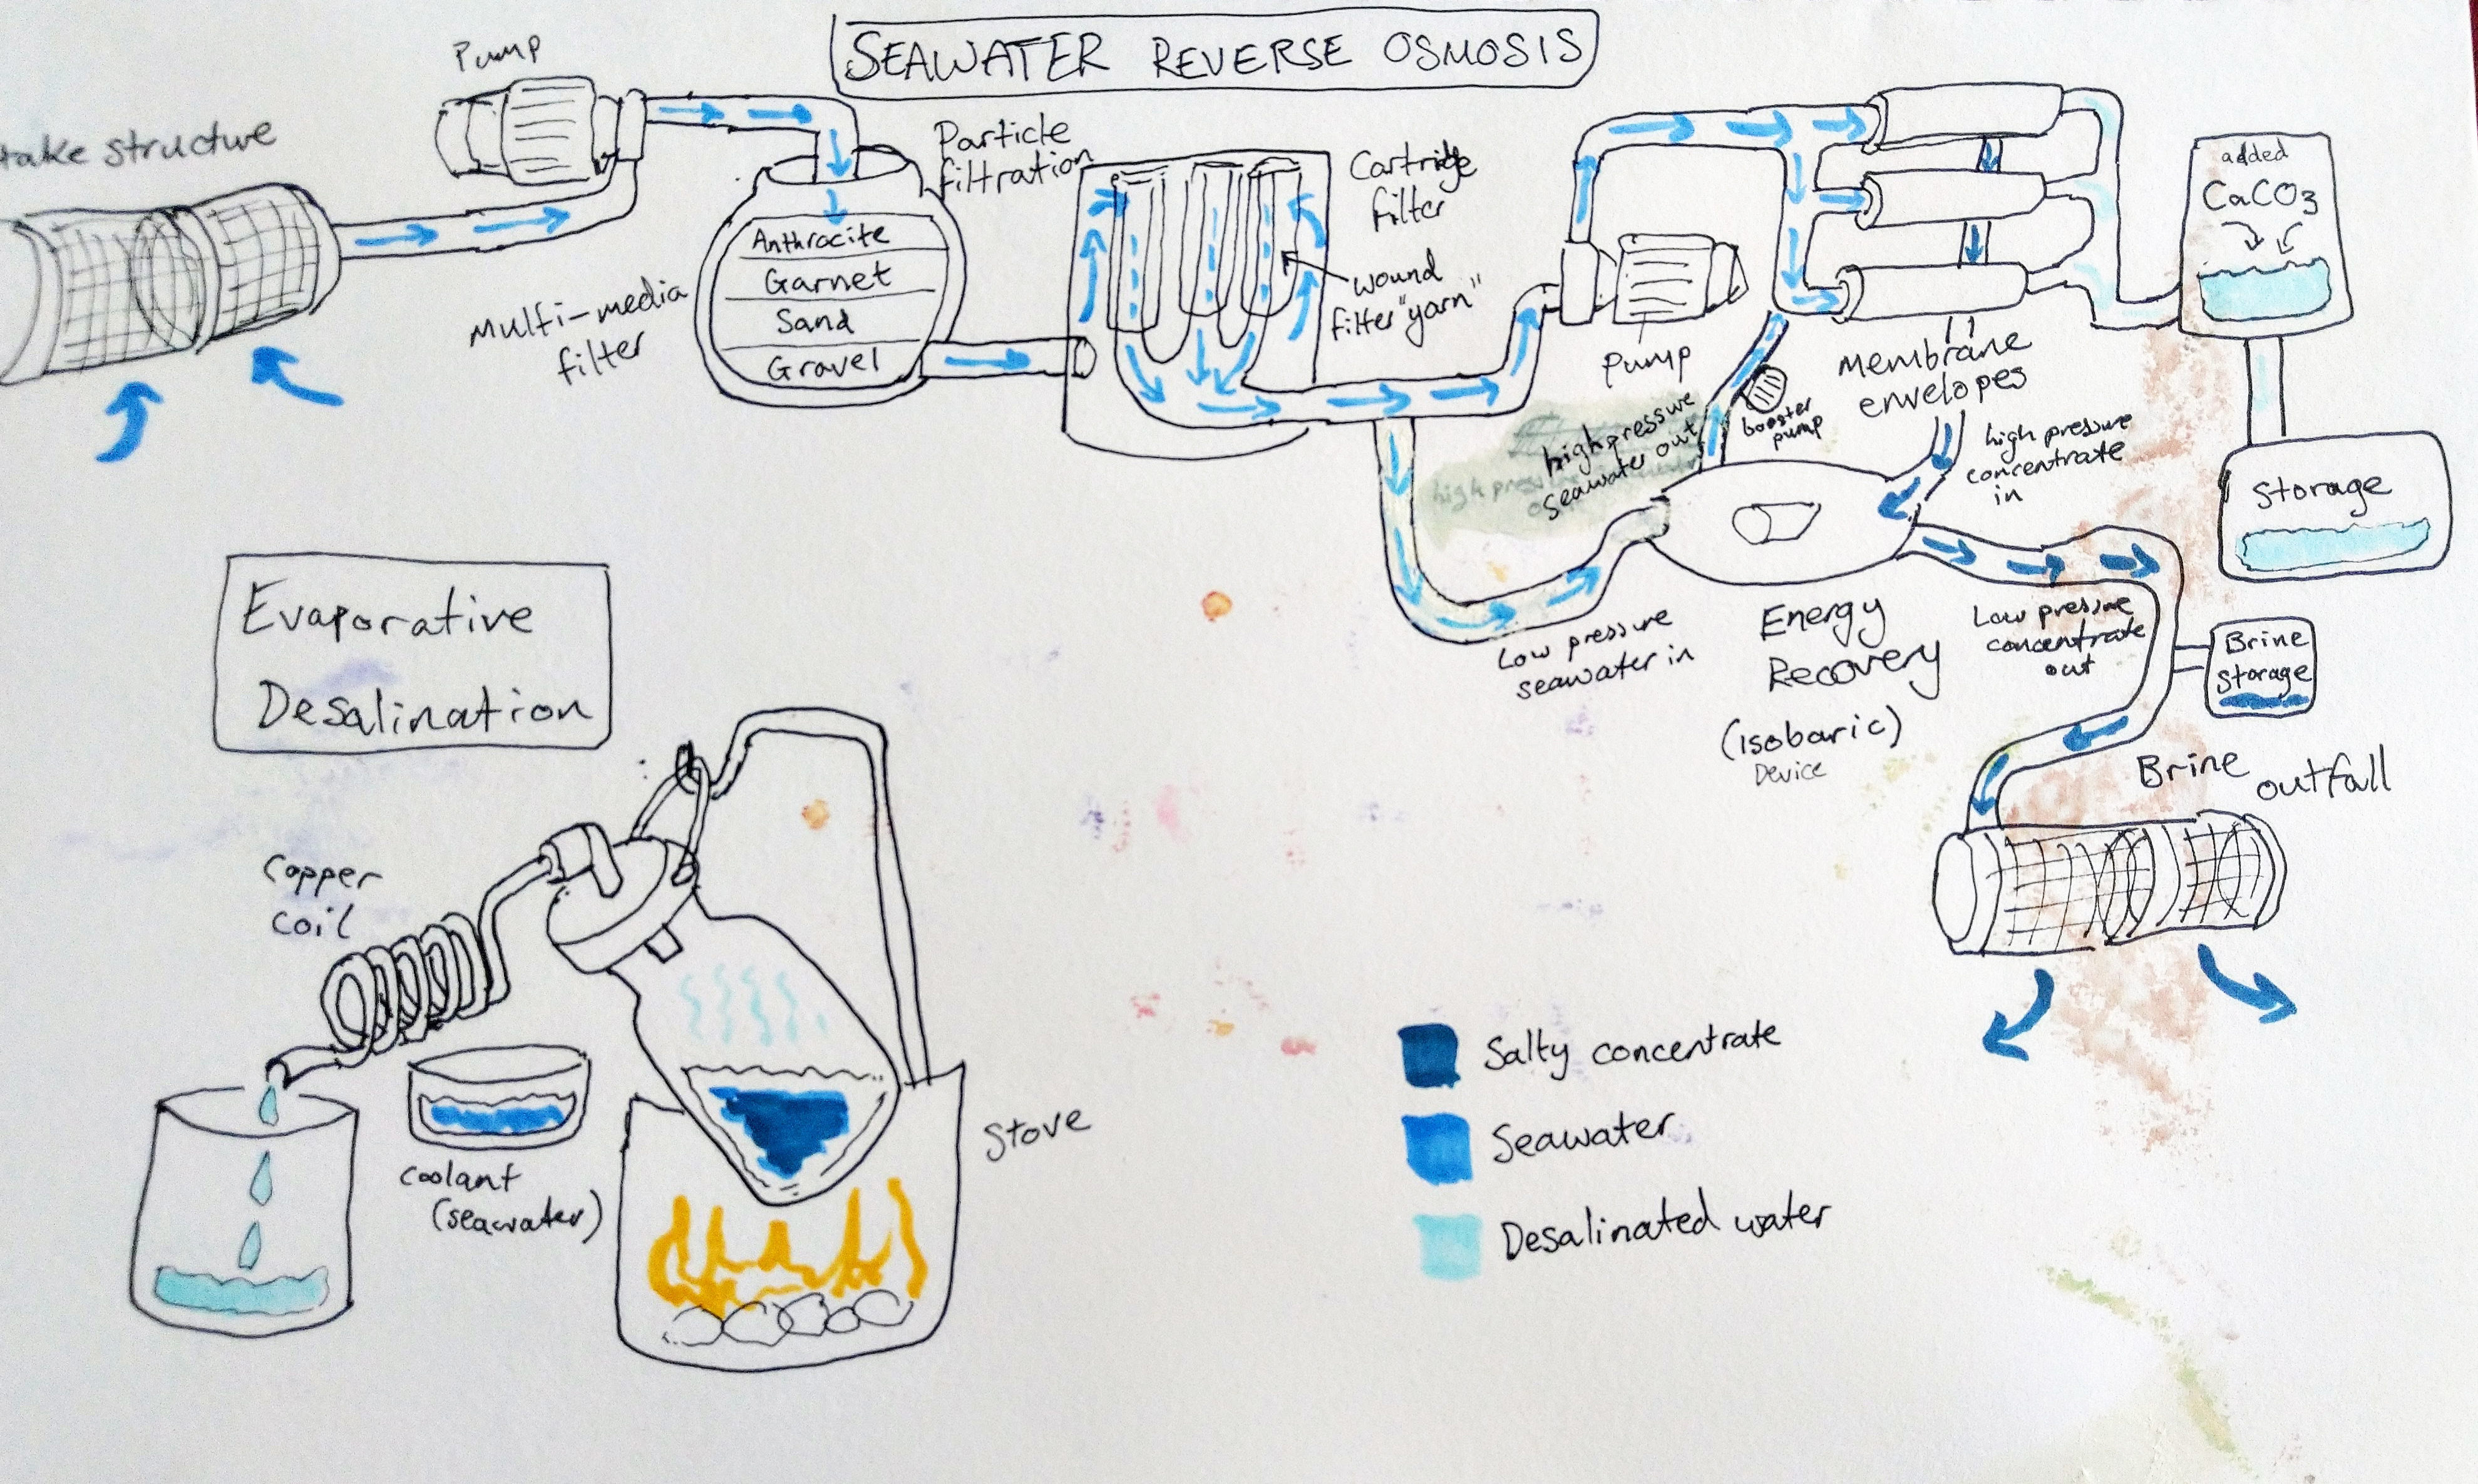 SEAWATER REVERSE OSMOSIS
Pump
take structure
Particle
filtration
Multi-media
filter
Anthrocite
Garnet
Sand
Gravel
Cartridge
filter
wound
filter "yarn"
Pump
Membrane
envelopes
added
CaCO3
Storage
high pressure
seawater out
high pres
booster
pump
high pressure
concentrate
in
Low pressure
seawater in
Energy
Recovery
(isobaric)
Device
Low pressure
concentrate
out
Brine
Storage
Brine outfall
Evaporative
Desalination
Copper
coil
coolant
(seawater)
Stove
Salty concentrate
Seawater
Desalinated water